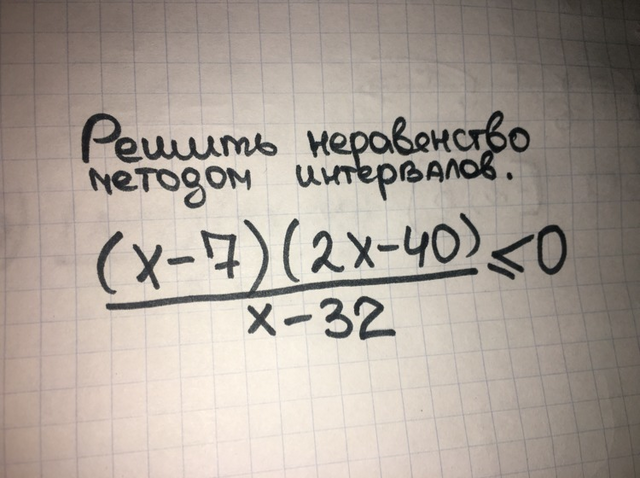 Решить неравенство
методом интервалов.
(x-7)(2x-40) ≤0
x-32